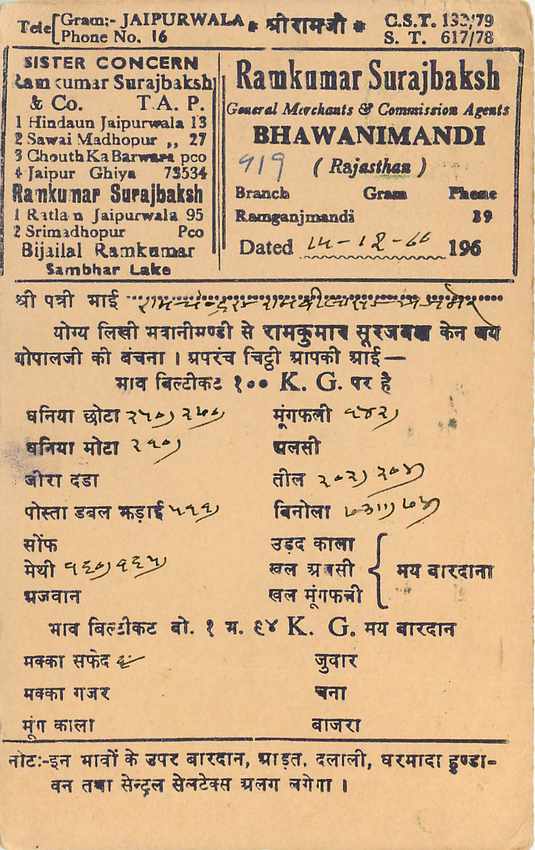 Tele[Gram:- JAIPURWALA * श्रीरामजी * C.S.T. 133/79
Phone No. 16 S. T. 617/78
SISTER CONCERN
Ramkumar Surajbaksh
& Co. T. A. P.
1 Hindaun Jaipurwala 13
2 Sawai Madhopur ,, 27
3 Chouth Ka Barwara pco
4 Jaipur Ghiya 73534
Ramkumar Surajbaksh
1 Ratlam Jaipurwala 95
2 Srimadhopur Pco
Bijailal Ramkumar
Sambhar Lake
Ramkumar Surajbaksh
General Merchants & Commission Agents
BHAWANIMANDI
919 ( Rajasthan )
Branch Gram Phone
Ramganjmandi 39
Dated 14-12-66 196
श्री पत्री भाई
योग्य लिखी भवानीमण्डी से रामकुमार सूरजबक्ष केन जय
गोपालजी की बंचना । अपरंच चिट्ठी आपकी आई—
भाव बिल्टीकट १०० K. G. पर है
धनिया छोटा २५०) २७०) मूंगफली १४२)
धनिया मोटा २१०) अलसी
जीरा दडा तील २०२) २०४)
पोस्ता डबल कड़ाई ५११) बिनोला ७३॥) ७४)
सोंफ उड़द काला
मेथी १६०) १६५) खल अलसी } मय बारदाना
अजवान खल मूंगफली
भाव बिल्टीकट बो. १ म. ९४ K. G. मय बारदान
मक्का सफेद जुवार
मक्का गजर चना
मूंग काला बाजरा
नोट:-इन भावों के उपर बारदान, आड़त, दलाली, धरमादा हुण्डा-
वन तथा सेन्ट्रल सेलटेक्स अलग लगेगा ।